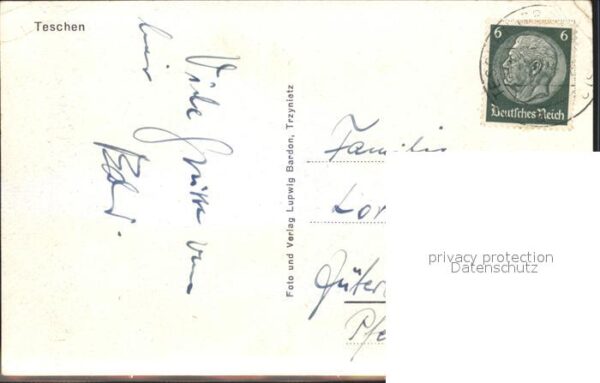 Teschen
Viele Grüsse von
hier
Foto und Verlag Ludwig Bardon, Trzynietz
6 6
Deutsches Reich
Familie
Lor
Güter
Pfe
privacy protection
Datenschutz